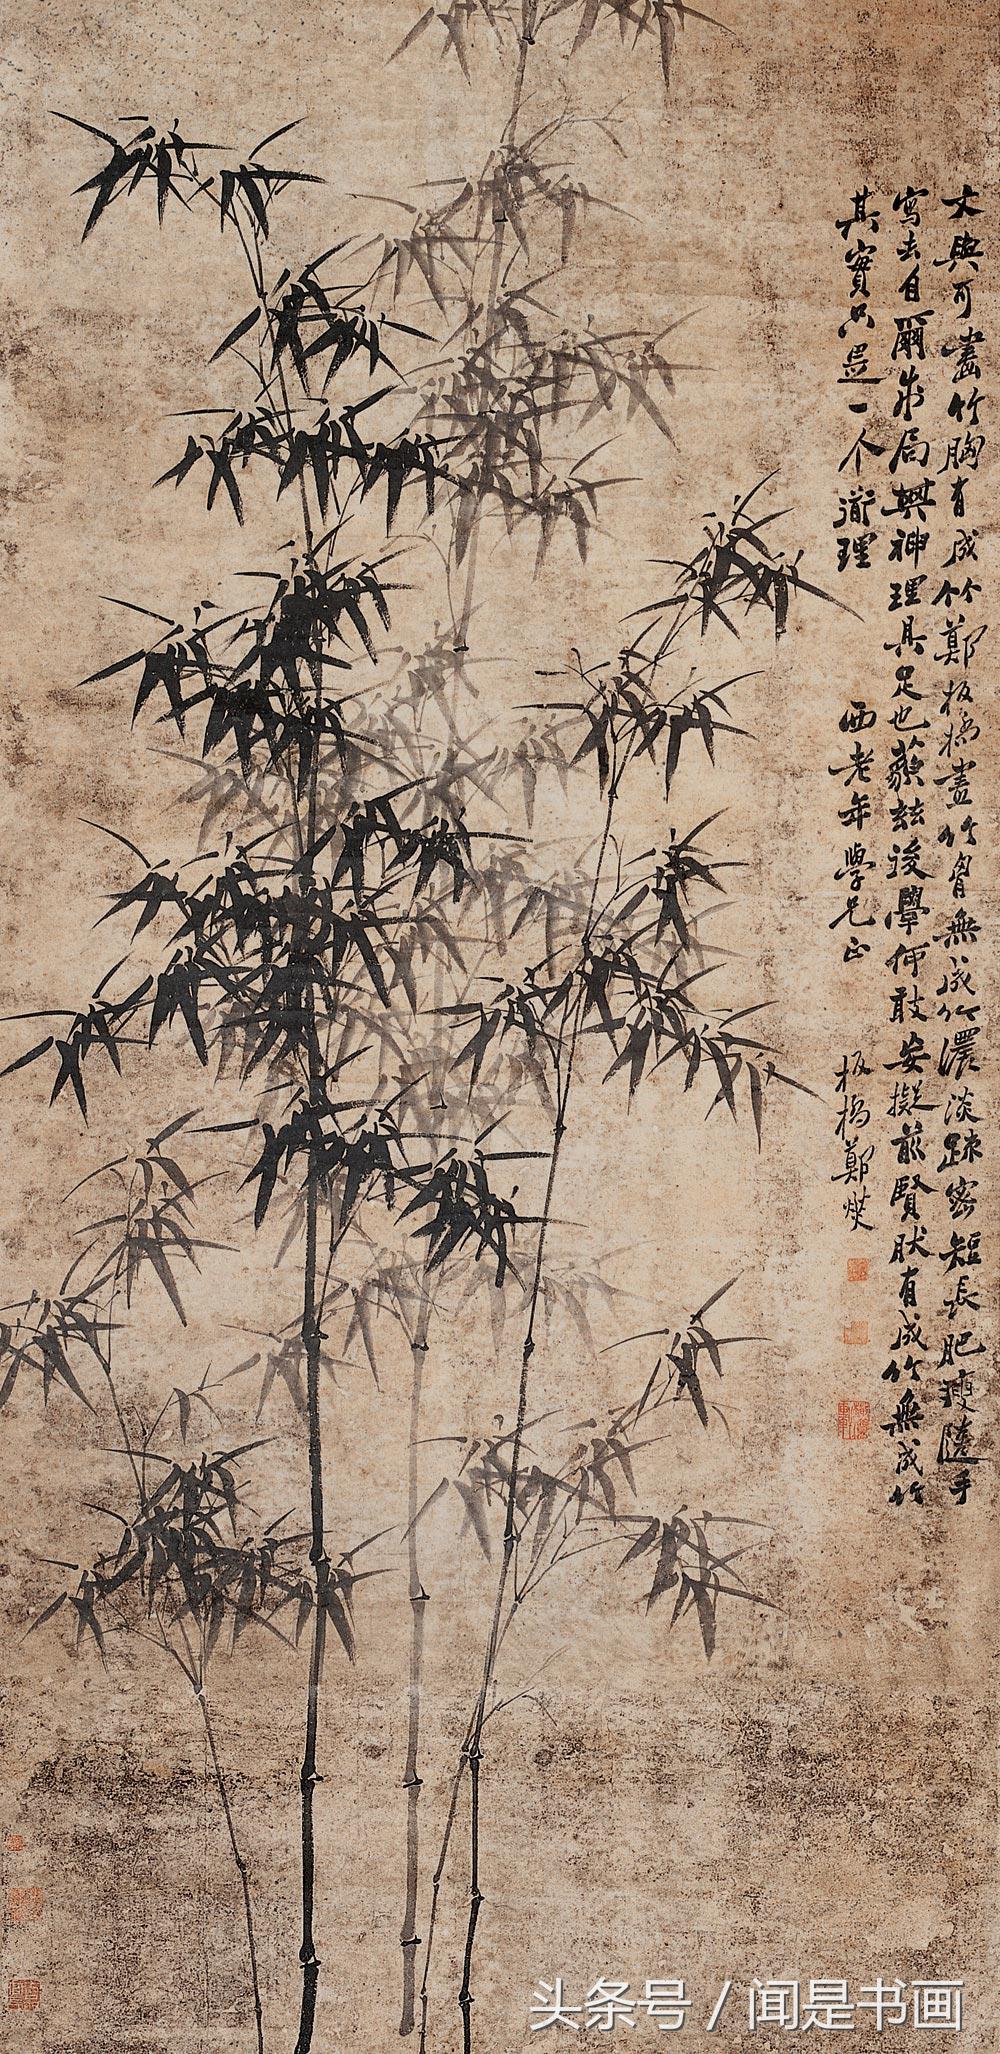 文與可畫竹胸有成竹鄭板橋畫竹胷無成竹濃淡疎密短長肥瘦隨手
寫去自爾成局其神理具足也藐玆後學何敢妄擬前賢肰有成竹無成竹
其實只是一个道理
酉老年學兄正
板橋鄭燮
头条号 / 闻是书画